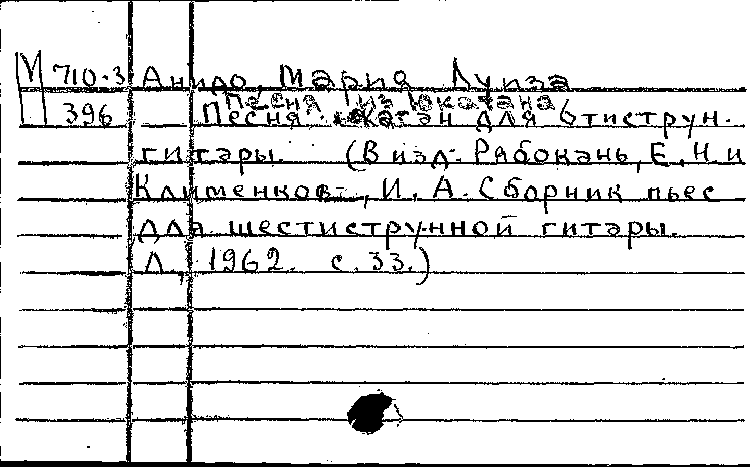 М 710-3 Анидо, Мария Луиза
П 396 Песня из Юкатана
Песня для 6тиструн.
гитары. (В изд. Рябоконь, Е. Н и
Клименков, И. А. Сборник пьес
для шестиструнной гитары.
Л., 1962. с. 33.)